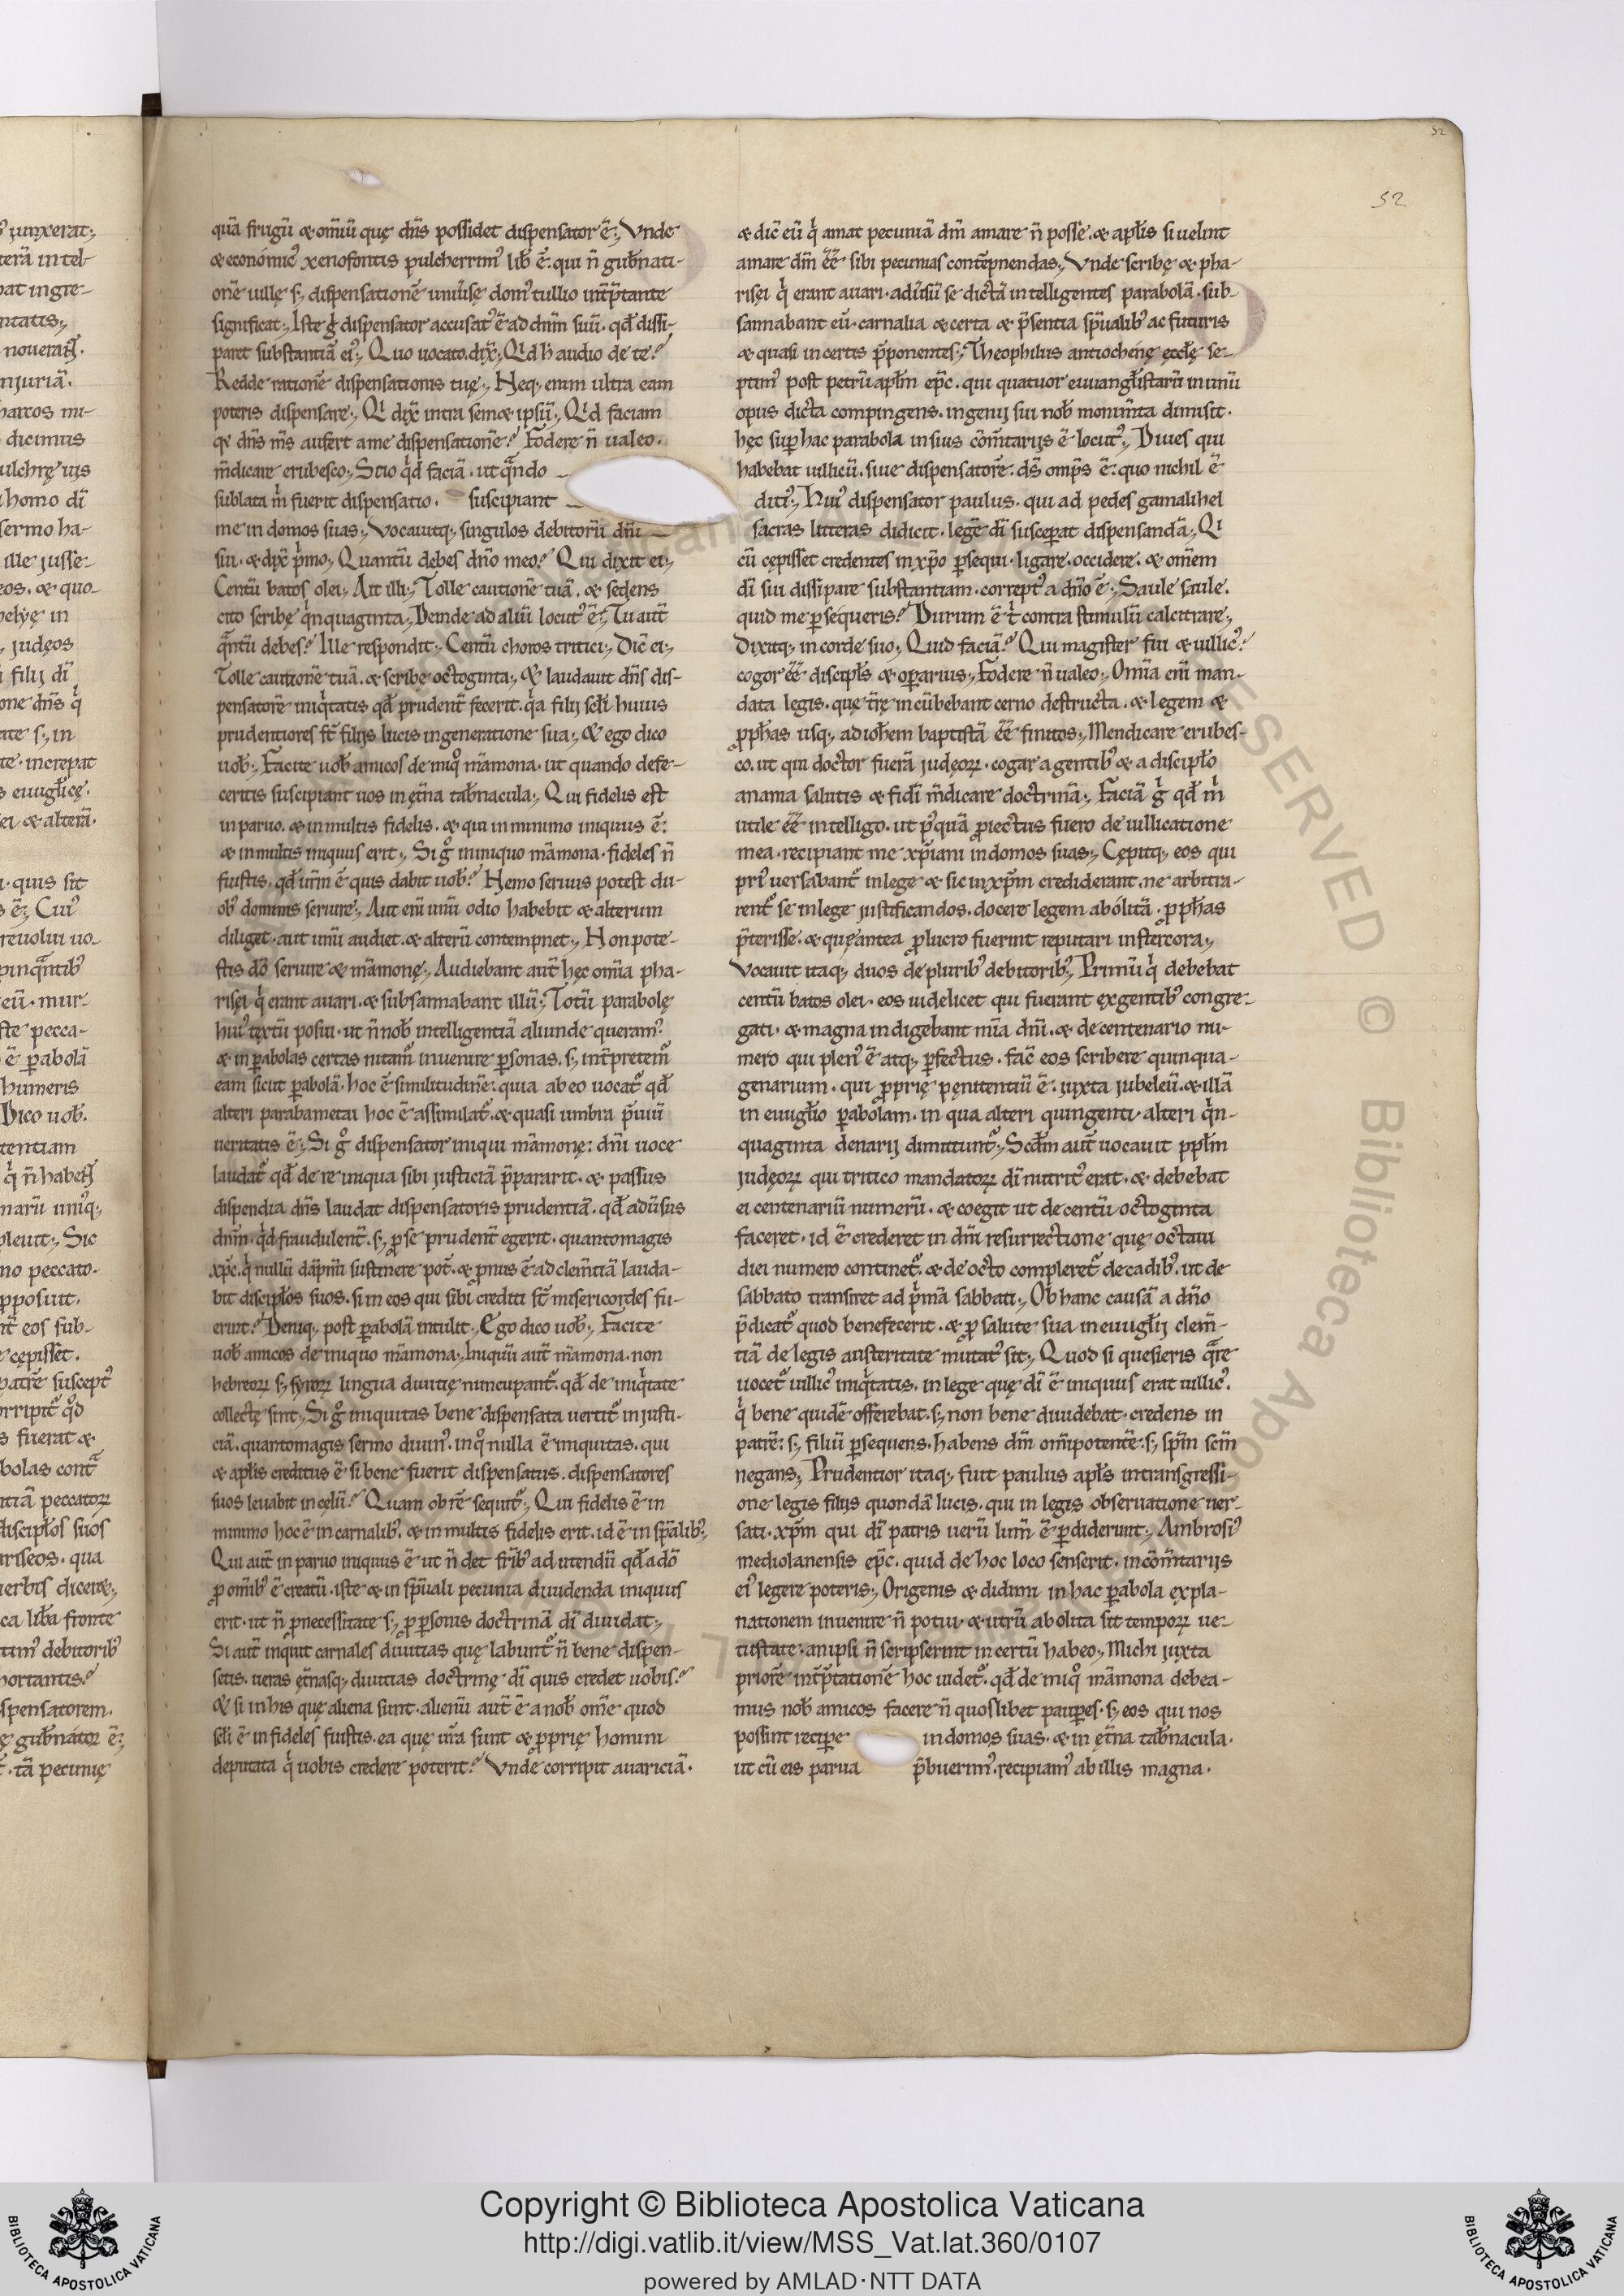 52
52
quā frugū & om̄iū quę dn̄s possidet dispensator ē; Vnde
& económic᾽ xenofontis pulcherrim᾽ lib̄ ē. qui n̄ gub̄nati-
onē uillę s; dispensationē uniūsę dom᾽ tullio int̄p̄tante
significat; Iste gͥ dispensator accusat᾽ ē ad dnm̄ suū. qd̄ dissi-
paret substantiā ei᾽; Quo uocato. dix̄; Qͥd h̄ audio de te?
Redde rationē dispensationis tuę; Neq; enim ultra eam
poteris dispensare; Qͥ dix̄ intra sem&ipsū; Qͥd faciam
qͣ dn̄s m̄s aufert a me dispensationē? Fodere n̄ ualeo.
m̄dicare erubesco; Scio qͥd faciā. ut qͣndo
sublata m̄ fuerit dispensatio. suscipiant
me in domos suas; Vocauitq; singulos debitorū dn̄i
sui. & dix̄ pͥmo; Quantū debes dn̄o meo? Qui dixit ei;
Centū batos olei; Ait illi; Tolle cautionē tuā. & sedens
cito scribę qͥnquaginta; Deinde ad aliū locut᾽ ē; Tu aut̄
qͣntū debes? Ille respondit; Centū choros tritici; Dic̄ ei;
Tolle cautionē tuā. & scribę octoginta; & laudauit dn̄s dis-
pensatorē iniqͥtatis qd̄ prudent̄ fecerit. qͥa filij sc̄li huius
prudentiores st̄ filijs lucis in generatione sua; & ego dico
uob̄; Facite uob̄ amicos de iniqͦ māmona. ut quando defe-
ceritis suscipiant uos in ęt̄na tab̄nacula; Qui fidelis est
in paruo. & in multis fidelis. & qui in minimo iniquus ē:
& in multis iniquus erit; Si gͦ in iniquo māmona. fideles n̄
fuistis. qd̄ ur̄m ē quis dabit uob̄? Nemo seruus potest du-
ob᾽ dominis seruire; Aut eni᾽ unū odio habebit & alterum
diliget. aut unū audiet. & alterū contempnet; Non pote-
stis dō seruire & māmonę; Audiebant aut̄ hęc om̄ia pha-
risęi qͥ erant auari. & subsannabant illū; Totū parabolę
hui᾽ textū posui. ut n̄ nob̄ intelligentiā aliunde queram᾽.
& in ꝑabolas certas nitam᾽ inuenire ꝑsonas. s; int̄pretem᾽
eam sicut ꝑabolā. hoc ē similitudinē. quia ab eo uocat᾽ qd̄
alteri parabametai hoc ē assimulat᾽. & quasi umbra p̄uiū
ueritatis ē; Si gͦ dispensator iniqui māmonę: dn̄i uoce
laudat᾽ qd̄ de re iniqua sibi justiciā p̄pararit. & passus
dispendia dn̄s laudat dispensatoris prudentiā. qd̄ adūsus
dnm̄. qͥd fraudulent̄. s; ꝓ se prudent̄ egerit. quantomagis
xp̄c. qͥ nullū dāpnū sustinere pot̄. & pnus ē ad clem̄tiā lauda-
bit discipl̄os suos. si in eos qui sibi crediti st̄ misericordes fu-
erint? Deniq; post ꝑabolā intulit; Ego dico uob̄; Facite
uob̄ amicos de iniquo māmona; Iniquū aut̄ māmona. non
hebreoꝝ s; syroꝝ lingua diuitię nuncupant᾽. qd̄ de iniqͥtate
collectę sint; Si gͦ iniquitas bene dispensata uertit᾽ in justi-
ciā. quantomagis sermo diuin᾽. in qͦ nulla ē iniquitas. qui
& apl̄is creditus ē si bene fuerit dispensatus. dispensatores
suos leuabit in celū? Quam ob rē sequit᾽; Qui fidelis ē in
minimo hoc ē in carnalib᾽. & in multis fidelis erit. id ē in sp̄alib᾽;
Qui aut̄ in paruo iniquus ē ut n̄ det fr̄ib᾽ ad utendū qd̄ a dō
ꝓ omīb᾽ ē creatū. iste & in sp̄uali pecunia diuidenda iniquus
erit. ut n̄ ꝓ necessitate s; ꝓ ꝑsonis doctrinā dī diuidat;
Si aut̄ inquit carnales diuitias quę labunt᾽ n̄ bene dispen-
setis. ueras ęt̄nasq; diuitias doctrinę dī quis credet uobis?
& si in his quę aliena sunt. alienū aut̄ ē a nob̄ omē quod
sc̄li ē infideles fuistis. ea quę ur̄a sunt & ꝓprię homini
deputata qͥ uobis credere poterit? Vnde corripit auariciā.
& dic̄ eū qͥ amat pecuniā dm̄ amare n̄ posse. & apl̄is si uelint
amare dm̄ ēē sibi pecunias contēpnendas; Vnde scribę & pha-
risęi qͥ erant auari. adūsū se dictā intelligentes parabolā. sub-
sannabant eū. carnalia & certa & p̄sentia sp̄ualib᾽ ac futuris
& quasi incertis p̄ponentes; Theophilus antiochenę ęccl̄ę se-
ptim᾽ post petrū apl̄m ep̄c. qui quatuor euuangl̄istarū in unū
opus dicta compingens. ingenij sui nob̄ monim̄ta dimisit.
hęc suꝑ hac parabola in suis cōm̄tarijs ē locut᾽; Diues qui
habebat uillicū. siue dispensatorē. ds̄ omp̄s ē. quo nichil ē
diti᾽; Hui᾽ dispensator paulus. qui ad pedes gamalihel
sacras litteras didicit. legē dī susceꝑat dispensandā; Qͥ
cū cępisset credentes in xp̄o ꝑsequi. ligare. occidere. & omēm
dī sui dissipare substantiam. corrept᾽ a dn̄o ē; Saule saule.
quid me ꝑsequeris? Durum ē tͥ contra stimulū calcitrare;
Dixitq; in corde suo; Quid faciā? Qui magister fui & uillic᾽?
cogor ēē discipl̄s & oꝑarius; Fodere n̄ ualeo; Om̄ia eni᾽ man-
data legis. quę t̄rę incūbebant cerno destructa. & legem &
ꝓph̄as usq; ad ioh̄em baptistā ēē finitos; Mendicare erubes-
co. ut qui doctor fuerā judęoꝝ. cogar a gentib᾽ & a discipl̄o
anania salutis & fidī m̄dicare doctrinā; Faciā gͥ qd̄ m̄
utile ēē intelligo. ut p᾽quā ꝓiectus fuero de uillicatione
mea. recipiant me xp̄iani in domos suas; Cępitq; eos qui
pri᾽ uersabant᾽ in lege & sic in xp̄m crediderant. ne arbitra-
rent᾽ se in lege justificandos. docere legem abólitā. ꝓph̄as
p̄terisse. & quę antea ꝓ lucro fuerint reputari in stercora;
Vocauit itaq; duos de plurib᾽ debitorib᾽; Primū qͥ debebat
centū batos olei. eos uidelicet qui fuerant ex gentib᾽ congre-
gati. & magna indigebant mīa dn̄i. & de centenario nu-
mero qui plen᾽ ē atq; ꝑfectus. fac̄ eos scribere quinqua-
genarium. qui ꝓprię pęnitentiū ē. juxta jubeleū. & illā
in euugl̄io ꝑabolam. in qua alteri quingenti. alteri qͥn-
quaginta denarij dimittunt᾽; Scd̄m aut̄ uocauit ppl̄m
judęoꝝ qui tritico mandatoꝝ dī nutrit᾽ erat. & debebat
ei centenariū numerū. & coegit ut de centū octoginta
faceret. id ē crederet in dn̄i resurrectione quę octaui
diei numero continet᾽. & de octo compleret᾽ decadib᾽. ut de
sabbato transiret ad pͥmā sabbati; Ob hanc causā a dn̄o
p̄dicat᾽ quod benefecerit. & ꝓ salute sua in euugl̄ij clem̄-
tiā de legis austeritate mutat᾽ sit; Quod si quesieris qͣre
uocet᾽ uillic᾽ iniqͥtatis. in lege quę dī ē iniquus erat uillic᾽.
qͥ bene quidē offerebat. s; non bene diuidebat. credens in
patrē: s; filiū ꝑsequens. habens dm̄ om̄ipotentē: s; sp̄m scm̄
negans; Prudentior itaq; fuit paulus apl̄s in transgressi-
one legis filijs quondā lucis. qui in legis obseruatione uer-
sati. xp̄m qui dī patris uerū lum̄ ē ꝑdiderunt; Ambrosi᾽
mediolanensis ep̄c. quid de hoc loco senserit. in cōm̄tarijs
ei᾽ legere poteris; Origenis & didimi in hac ꝑabola expla-
nationem inuenire n̄ potui. & utrū abolita sit tempoꝝ ue-
tustate. an ipsi n̄ scripserint incertū habeo; Michi juxta
priorē int̄p̄tationē hoc uidet᾽. qd̄ de iniqͦ māmona debea-
mus nob̄ amicos facere n̄ quoslibet pauꝑes. s; eos qui nos
possint reciꝑe in domos suas. & in ęt̄na tab̄nacula.
ut cū eis parua p̄buerim᾽. recipiam᾽ ab illis magna.
Copyright © Biblioteca Apostolica Vaticana
http://digi.vatlib.it/view/MSS_Vat.lat.360/0107
powered by AMLAD·NTT DATA
BIBLIOTECA APOSTOLICA VATICANA
BIBLIOTECA APOSTOLICA VATICANA